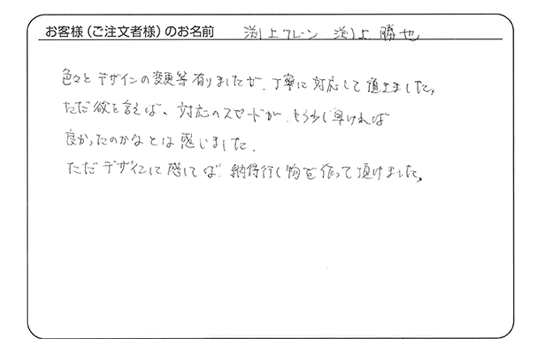 お客様（ご注文者様）のお名前 渕上クレーン 渕上 勝也
色々とデザインの変更等有りましたが、丁寧に対応して頂きました。
ただ欲を言えば、対応のスピードが、もう少し早ければ
良かったのかなとは感じました。
ただデザインに感しては、納得行く物を作って頂けました。